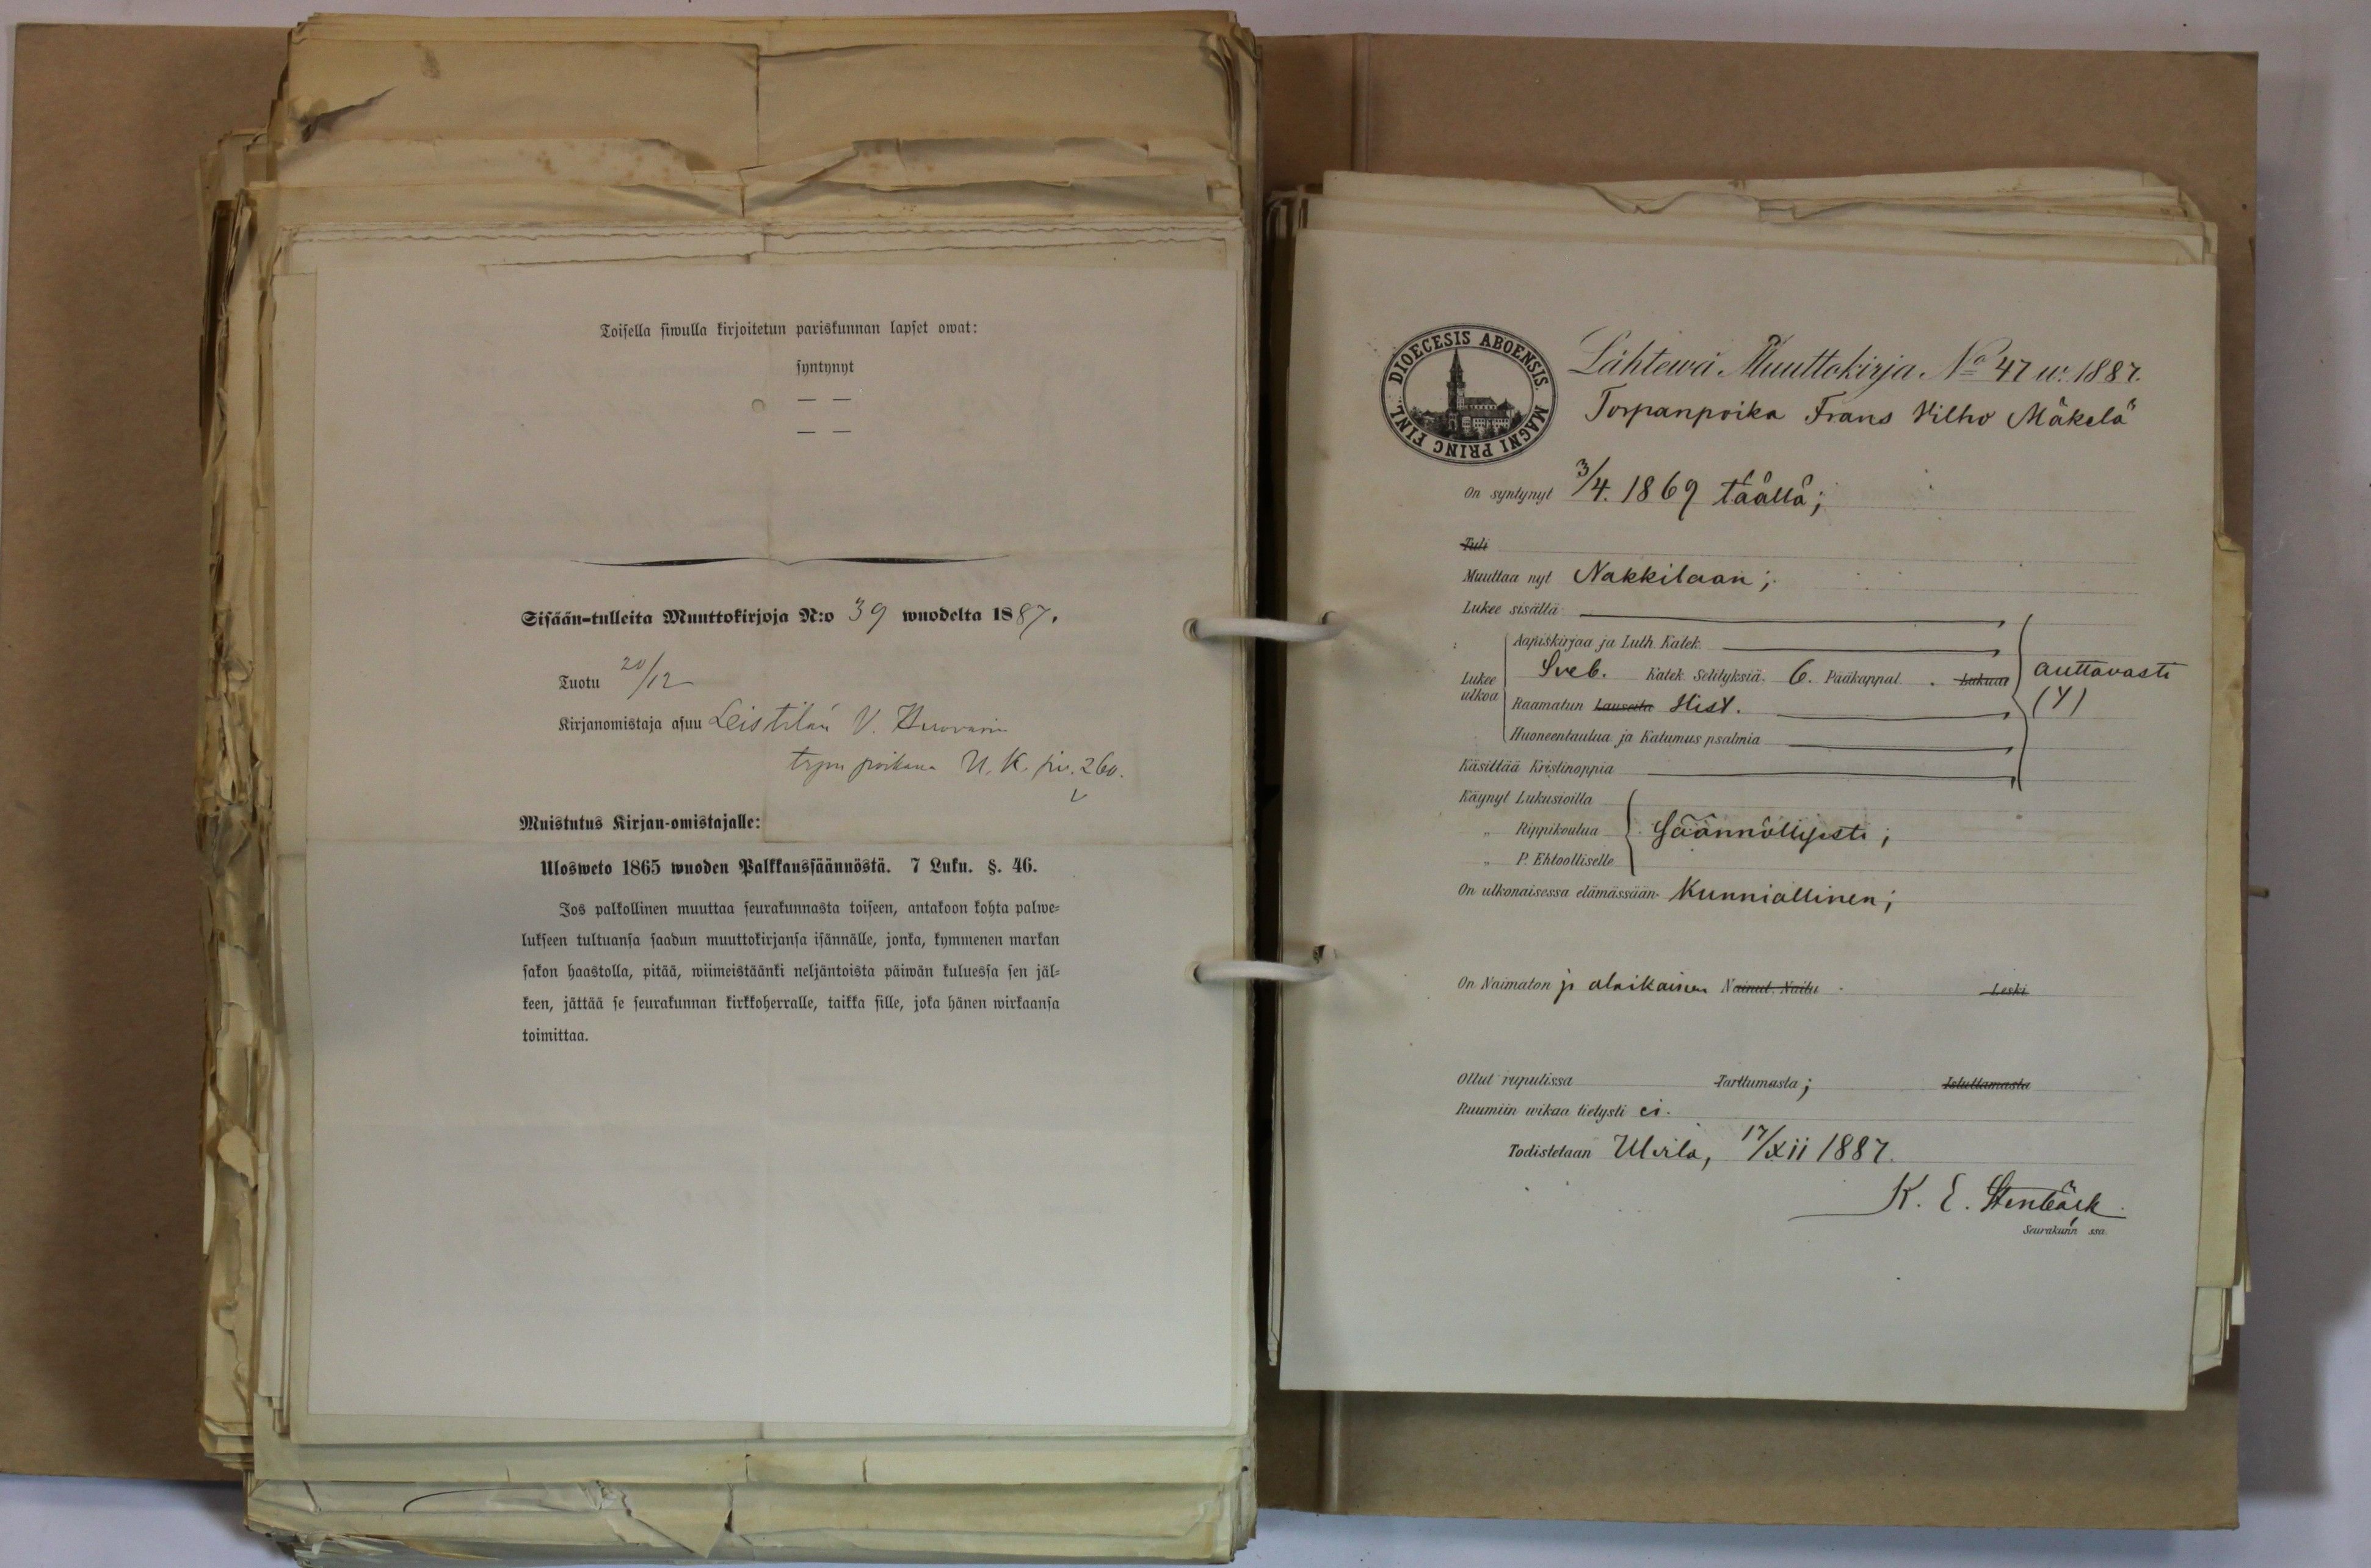 Toisella siwulla kirjoitetun pariskunnan lapset owat:
syntynyt
— —
— —
Sisään-tulleita Muuttokirjoja N:o 39 wuodelta 1887.
Tuotu 20/12
Kirjanomistaja asuu Leistilän V.
poikana U. K. siv. 260.
Muistutus Kirjan-omistajalle:
Ulosweto 1865 wuoden Palkkaussäännöstä. 7 Luku. §. 46.
Jos palkollinen muuttaa seurakunnasta toiseen, antakoon kohta palwe-
lukseen tultuansa saadun muuttokirjansa isännälle, jonka, kymmenen markan
sakon haastolla, pitää, wiimeistäänki neljäntoista päiwän kuluessa sen jäl-
keen, jättää se seurakunnan kirkkoherralle, taikka sille, joka hänen wirkaansa
toimittaa.
DIOECESIS ABOENSIS. MAGNI PRINC FINL.
Lähtewä Muuttokirja No 47 w. 1887.
Torpanpoika Frans Vilho Mäkelä
On syntynyt 3/4. 1869 täällä;
Tuli
Muuttaa nyt Nakkilaan;
Lukee sisältä
Aapiskirjaa ja Luth. Katek.
Lukee ulkoa Sveb. Katek. Selityksiä. 6. Pääkappal. Lukuas auttavasti
Raamatun Lauseita Hist. (Y)
Huoneentaulua ja Katumus psalmia
Käsittää Kristinoppia
Käynyt Lukusioilla
„ Rippikoulua Säännöllisesti;
„ P. Ehtoolliselle
On ulkonaisessa elämässään Kunniallinen;
On Naimaton ja alaikainen Nainut. Naitu Leski
Ollut rupulissa Tarttumasta; Istuttamasta
Ruumiin wikaa tietysti ei.
Todistetaan Ulvila, 17/XII 1887.
K. E. Stenbäck
Seurakunn ssa.